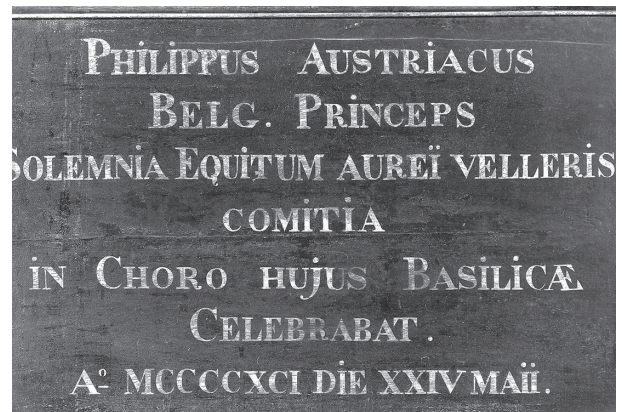 PHILIPPUS AUSTRIACUS
BELG. PRINCEPS
SOLEMNIA EQUITUM AUREÏ VELLERIS
COMITIA
IN CHORO HUJUS BASILICÆ
CELEBRABAT.
Aº MCCCCXCI DIE XXIV MAÏI.